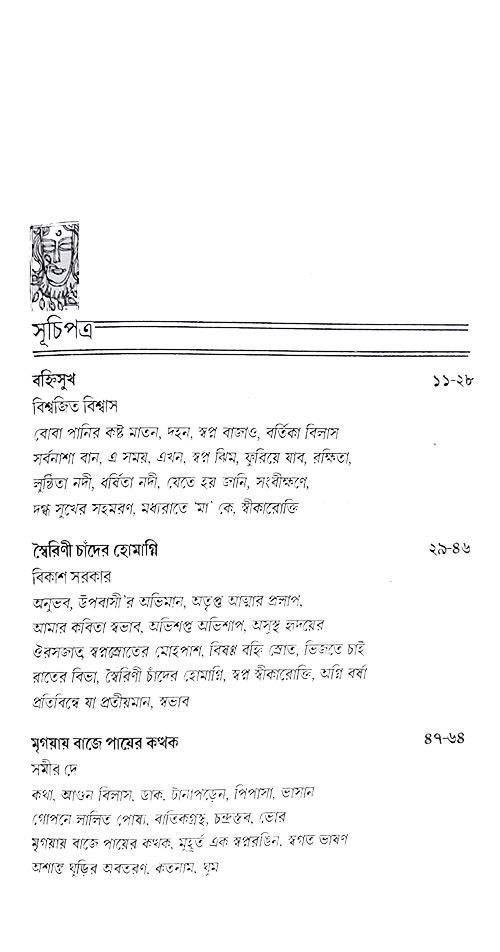 সূচিপত্র
বহ্নিসুখ ১১-২৮
বিশ্বজিত বিশ্বাস
বোবা পানির কষ্ট মাতন, দহন, স্বপ্ন বাজাও, বর্তিকা বিলাস
সর্বনাশা বান, এ সময়, এখন, স্বপ্ন ঝিম, ফুরিয়ে যাব, রক্ষিতা,
লুণ্ঠিতা নদী, ধর্ষিতা নদী, যেতে হয় জানি, সংবীক্ষণে,
দগ্ধ সুখের সহমরণ, মধ্যরাতে 'মা' কে, স্বীকারোক্তি
স্বৈরিণী চাঁদের হোমাগ্নি ২৯-৪৬
বিকাশ সরকার
অনুভব, উপবাসী'র অভিমান, অতৃপ্ত আত্মার প্রলাপ,
আমার কবিতা স্বভাব, অভিশপ্ত অভিশাপ, অসুস্থ হৃদয়ের
ঔরসজাত স্বপ্নস্রোতের মোহপাশ, বিষণ্ণ বহ্নি স্রোত, ভিজতে চাই
রাতের বিভা, স্বৈরিণী চাঁদের হোমাগ্নি, স্বপ্ন স্বীকারোক্তি, অগ্নি বর্ষা
প্রতিবিম্বে যা প্রতীয়মান, স্বভাব
মৃগয়ায় বাজে পায়ের কত্থক ৪৭-৬৪
সমীর দে
কথা, আগুন বিলাস, ডাক, টানাপড়েন, পিপাসা, ভাসান
গোপনে লালিত পোষ্য, বাতিকগ্রস্থ, চন্দ্রস্তব, ভোর
মৃগয়ায় বাজে পায়ের কত্থক, মুহূর্ত এক স্বপ্নরঙিন, স্বগত ভাষণ
অশান্ত ঘুড়ির অবতরণ, কতনাম, ঘুম